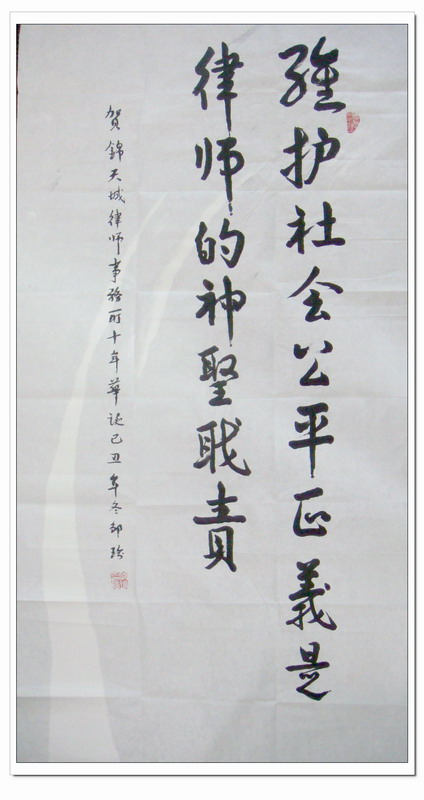 維护社会公平正義是
律师的神聖職責
賀錦天城律师事務所十年華誕己丑年冬